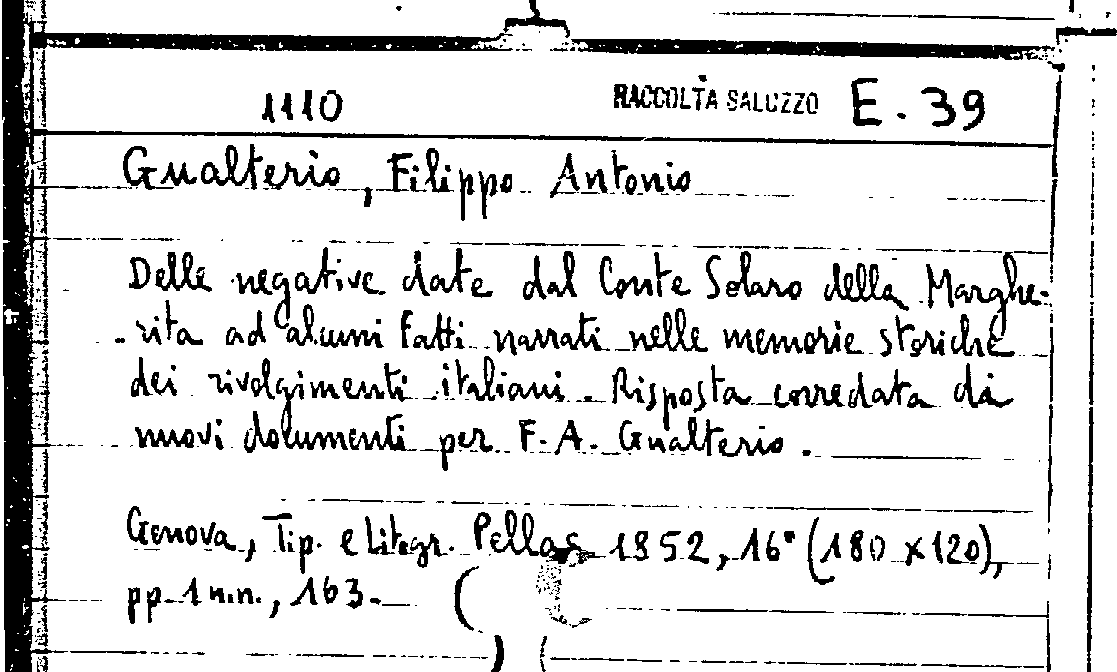 1110 RACCOLTA SALUZZO E. 39
Gualterio, Filippo Antonio
Delle negative date dal Conte Solaro della Marghe-
-rita ad alcuni fatti narrati nelle memorie storiche
dei rivolgimenti italiani. Risposta corredata di
nuovi documenti per F. A. Gualterio.
Genova, Tip. e Litogr. Pellas 1852, 16° (180 x 120),
pp. 1 n.n., 163.